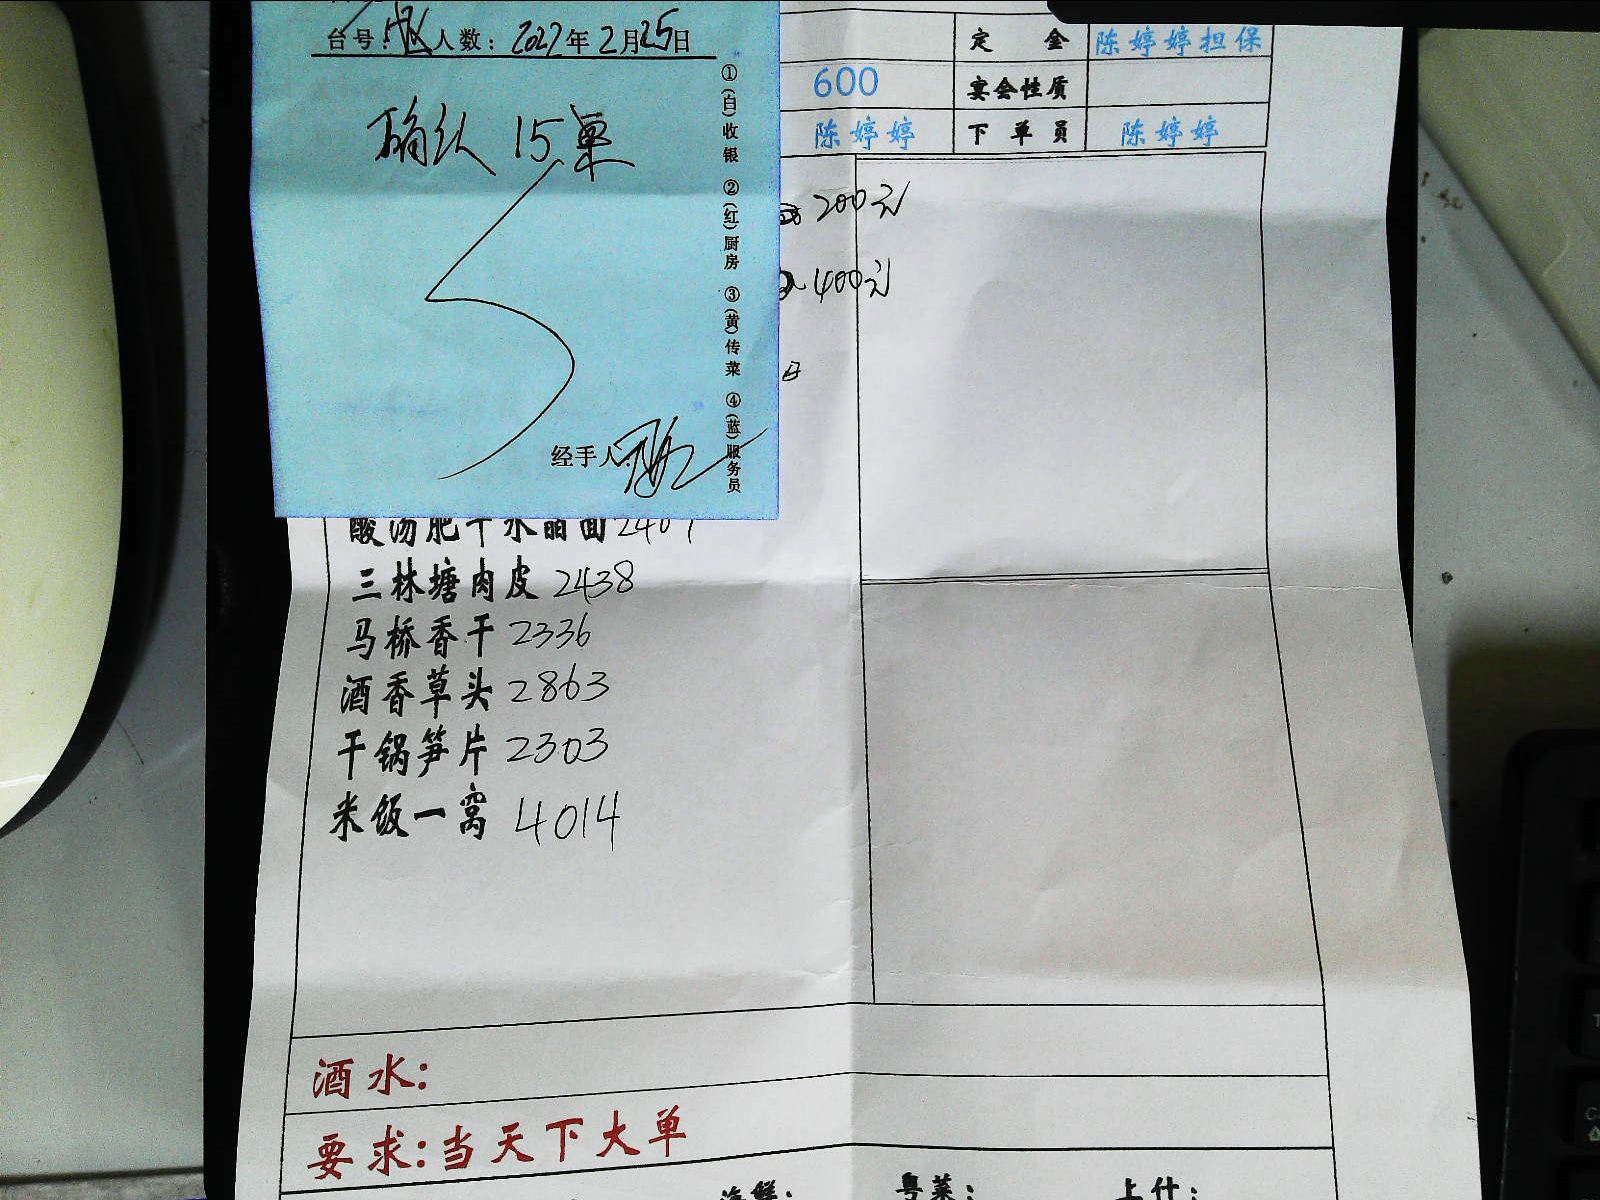 台号: 人数: 2022年2月25日
确认 15桌
经手人:
①(白)收银 ②(红)厨房 ③(黄)传菜 ④(蓝)服务员
定金 陈婷婷担保
600 宴会性质
陈婷婷 下单员 陈婷婷
200元
400元
酸汤肥牛水晶面
三林塘肉皮 2438
马桥香干 2336
酒香草头 2863
干锅笋片 2303
米饭一窝 4014
酒水:
要求:当天下大单
海鲜: 粤菜: 上什: